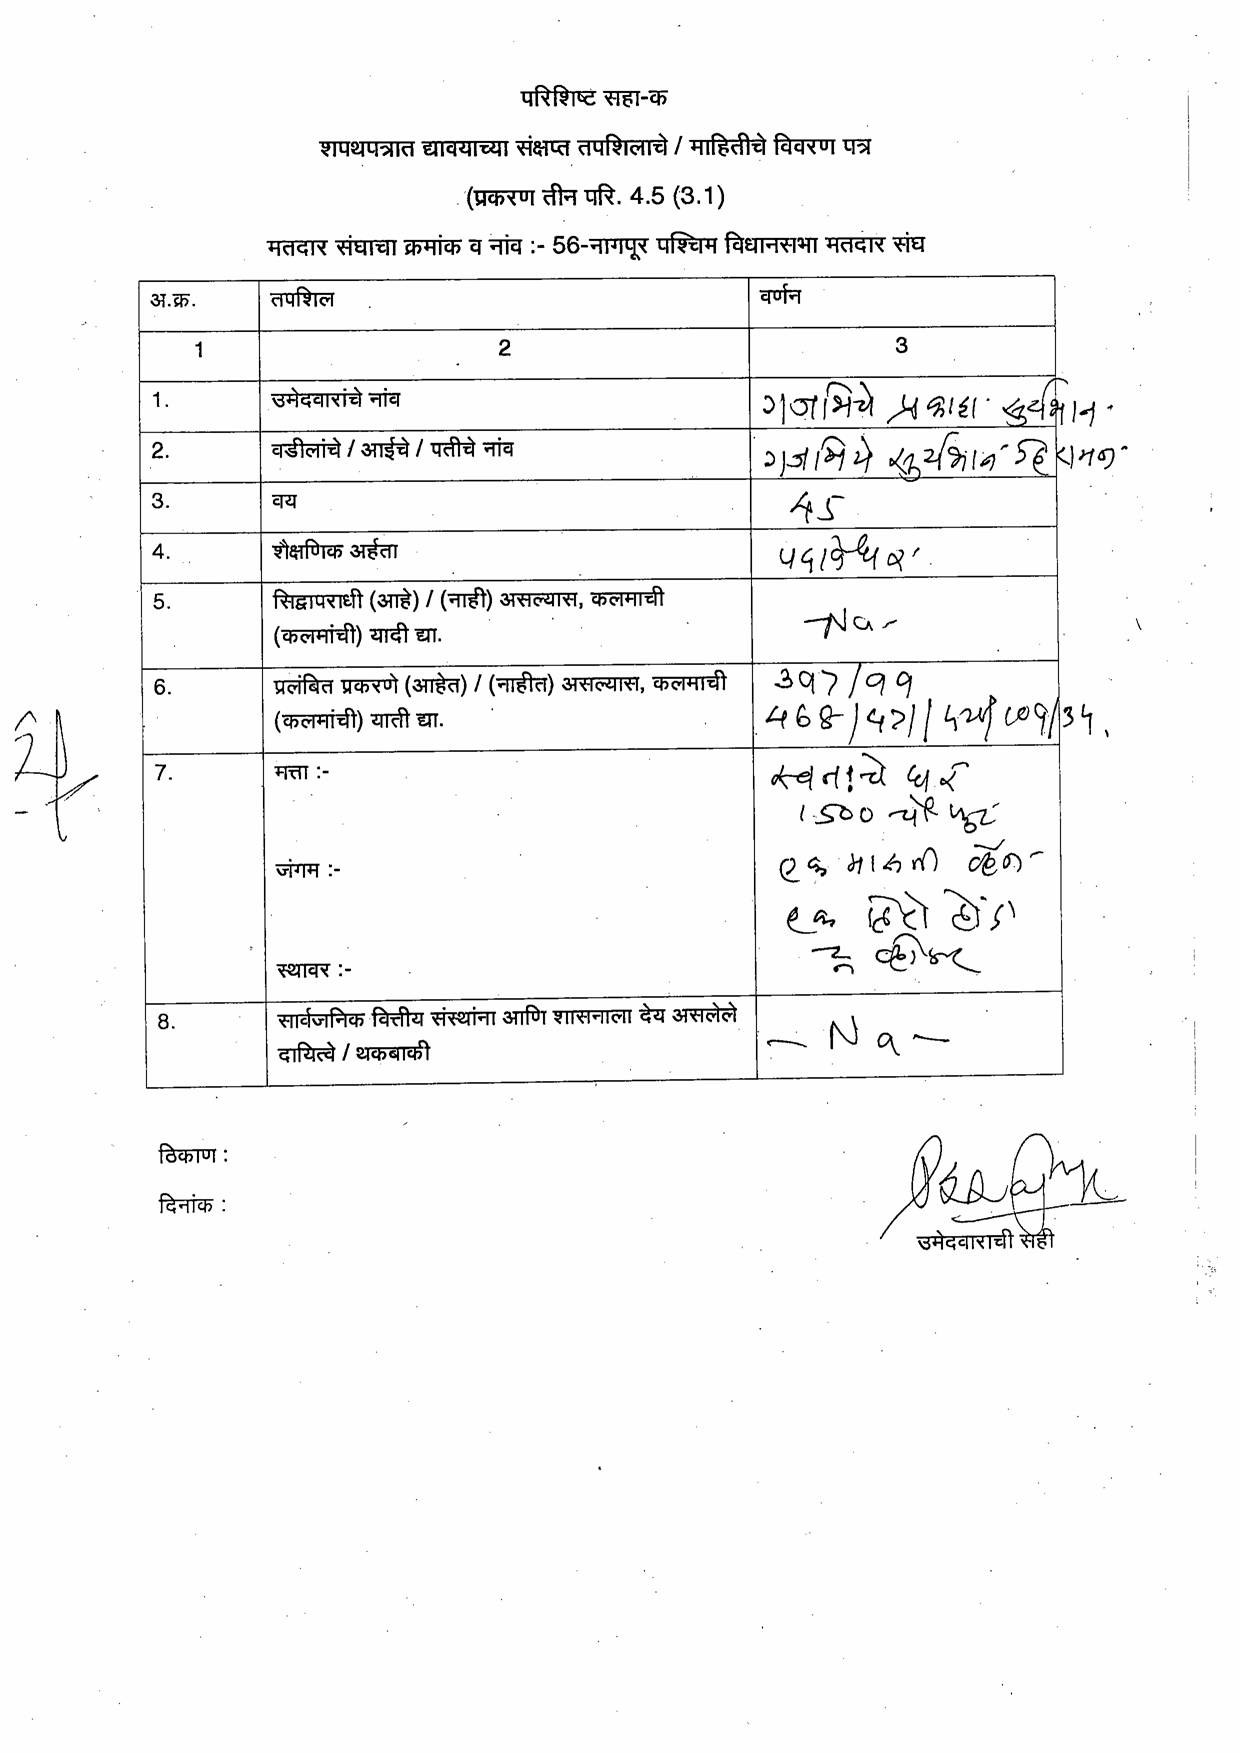 परिशिष्ट सहा-क
शपथपत्रात द्यावयाच्या संक्षप्त तपशिलाचे / माहितीचे विवरण पत्र
(प्रकरण तीन परि. 4.5 (3.1)
मतदार संघाचा क्रमांक व नांव :- 56-नागपूर पश्चिम विधानसभा मतदार संघ
अ.क्र. तपशिल वर्णन
1 2 3
1. उमेदवारांचे नांव गजभिये प्रकाश सुर्यभान
2. वडीलांचे / आईचे / पतीचे नांव गजभिये सुर्यभान हिरामन
3. वय 45
4. शैक्षणिक अर्हता पदविधर
5. सिद्वापराधी (आहे) / (नाही) असल्यास, कलमाची -Na-
(कलमांची) यादी द्या.
6. प्रलंबित प्रकरणे (आहेत) / (नाहीत) असल्यास, कलमाची 397/99
(कलमांची) याती द्या. 468/
7. मत्ता :- स्वताःचे घर
1500 चौ फुट
जंगम :- एक मारुती व्हॅन
एक हिरो होंडा
स्थावर :- टू व्हीलर
8. सार्वजनिक वित्तीय संस्थांना आणि शासनाला देय असलेले - Na -
दायित्वे / थकबाकी
ठिकाण :
दिनांक :
उमेदवाराची सही